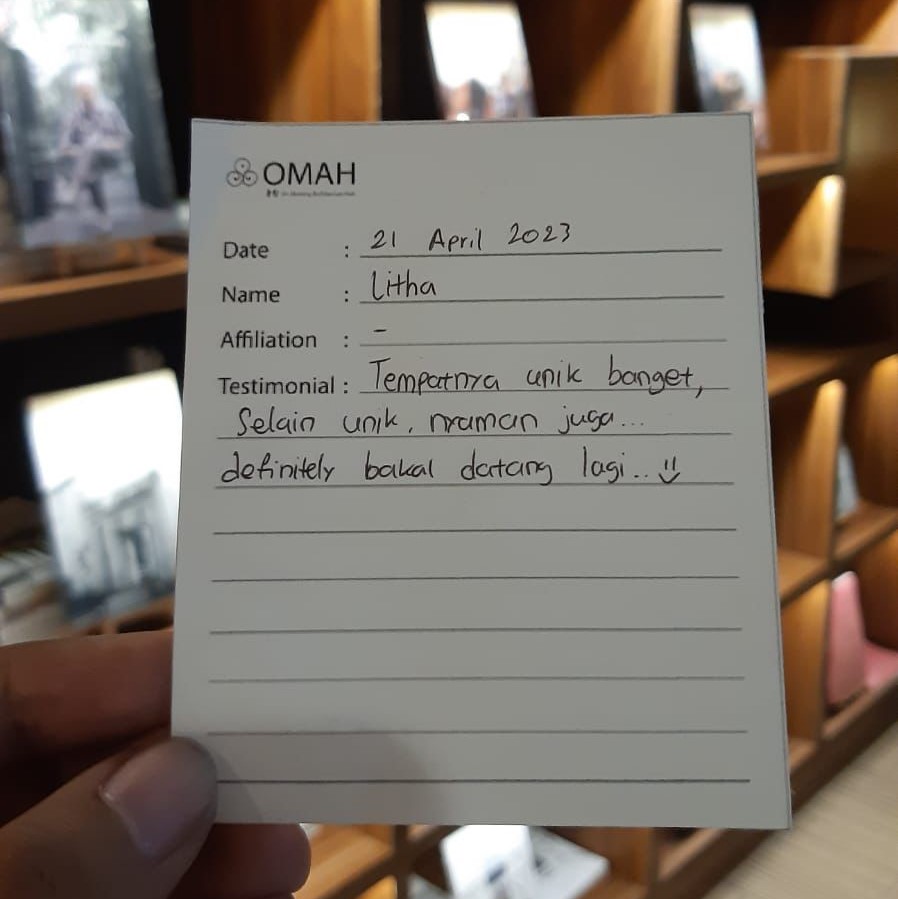 OMAH
Date : 21 April 2023
Name : Litha
Affiliation : -
Testimonial : Tempatnya unik banget,
Selain unik, nyaman juga...
definitely bakal datang lagi..